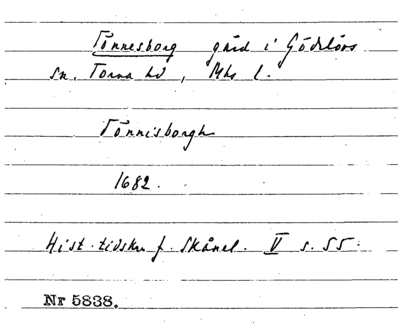 Tönnesborg gård i Gödelövs
sn. Torna hd, Mhs l.
Tönnisborgh
1682.
Hist. tidskr. f. Skånel. V s. 55.
Nr 5838.